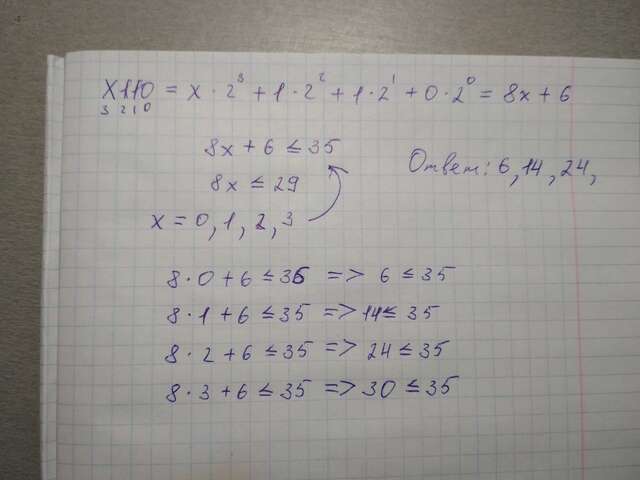 X110 = x · 2³ + 1 · 2² + 1 · 2¹ + 0 · 2⁰ = 8x + 6
3 2 1 0
8x + 6 ≤ 35
8x ≤ 29
x = 0, 1, 2, 3
Ответ: 6, 14, 24,
8 · 0 + 6 ≤ 35 => 6 ≤ 35
8 · 1 + 6 ≤ 35 => 14 ≤ 35
8 · 2 + 6 ≤ 35 => 24 ≤ 35
8 · 3 + 6 ≤ 35 => 30 ≤ 35